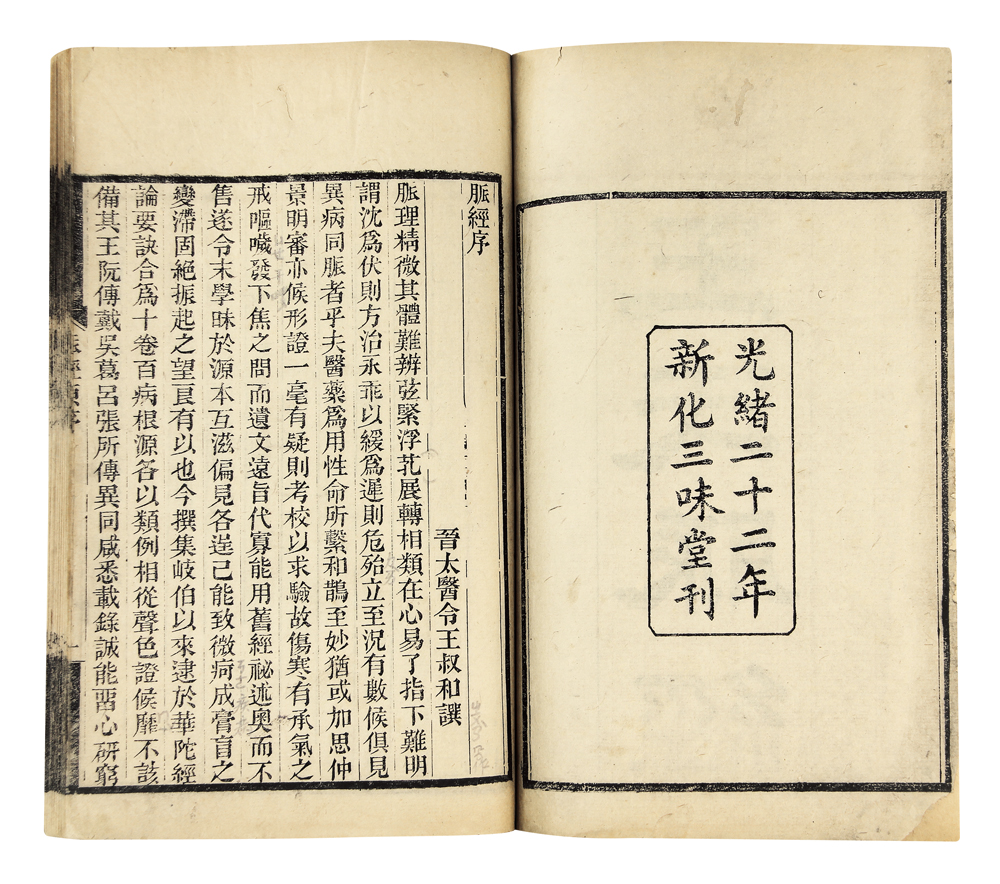 光緒二十二年
新化三味堂刊
脈經序
晉太醫令王叔和譔
脈理精微其體難辨弦緊浮芤展轉相類在心易了指下難明
謂沈爲伏則方治永乖以緩爲遲則危殆立至況有數候俱見
異病同脈者乎夫醫藥爲用性命所繫和鵲至妙猶或加思仲
景明審亦候形證一毫有疑則考校以求驗故傷寒有承氣之
戒嘔噦發下焦之問而遺文遠旨代寡能用舊經祕述奧而不
售遂令末學昧於源本互滋偏見各逞己能致微疴成膏肓之
變滯固絕振起之望良有以也今撰集岐伯以來逮於華陀經
論要訣合爲十卷百病根源各以類例相從聲色證候靡不該
備其王阮傳戴吳葛呂張所傳異同咸悉載錄誠能畱心研窮